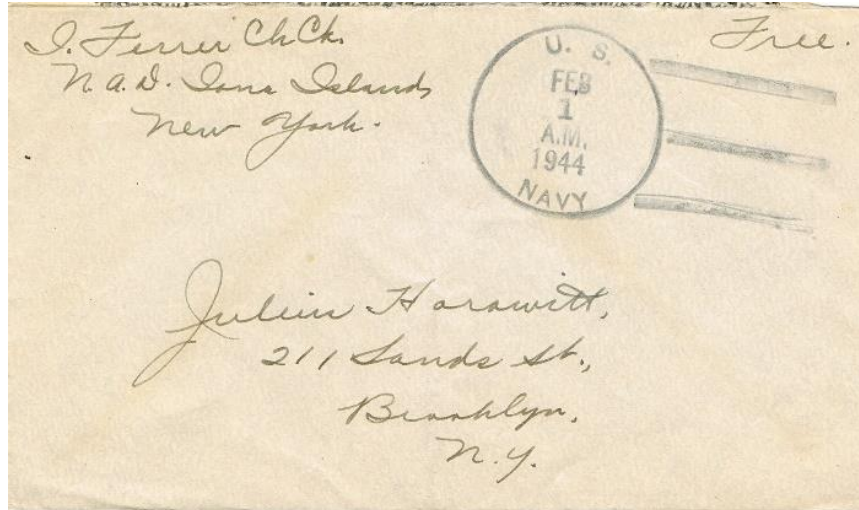 I. Ferrer Ch Ck.
N.A.D. Iona Islands
New York.
Free.
U. S.
FEB
1
A.M.
1944
NAVY
Julius Horowitt,
211 Sands St.,
Brooklyn,
N.Y.